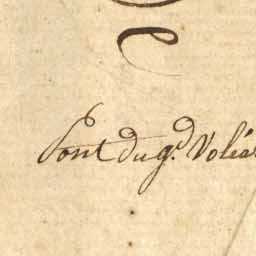 Pont du g.d Voléa